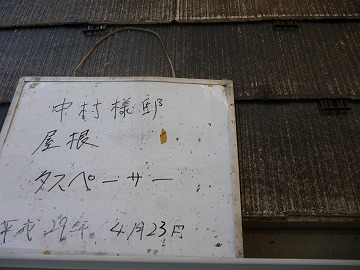 中村様邸
屋根
タスペーサー
平成29年 4月23日